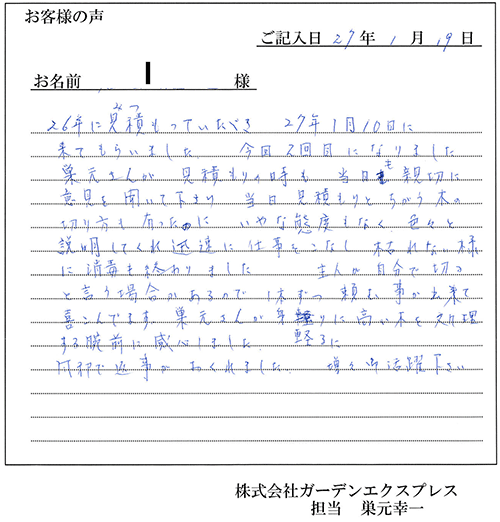 お客様の声
ご記入日 27年 1月 19日
お名前 様
みつ
26年に見積もっていただき 27年1月10日に
来てもらいました 今回2回目になりました
巣元さんが 見積もりの時も 当日も 親切に
意見を聞いて下さり 当日 見積もりとちがう木の
切り方も有ったのに いやな態度もなく 色々と
説明してくれ迅速に仕事をこなし 枯れない様
に消毒も終わりました 主人が自分で切る
と言う場合があるので 1本ずつ 頼む事が出来て
喜こんでます 巣元さんが身軽に高い木を処理
する腕前に感心しました
風邪で返事がおくれました 増々御活躍下さい
株式会社ガーデンエクスプレス
担当 巣元幸一